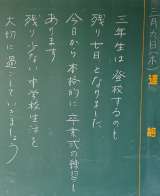 三月九日(木)
連絡
三年生は登校するのも
残り七日となりました
今日から本格的に卒業式の練習も
あります
残り少ない中学校生活を
大切に過ごしていきましょう